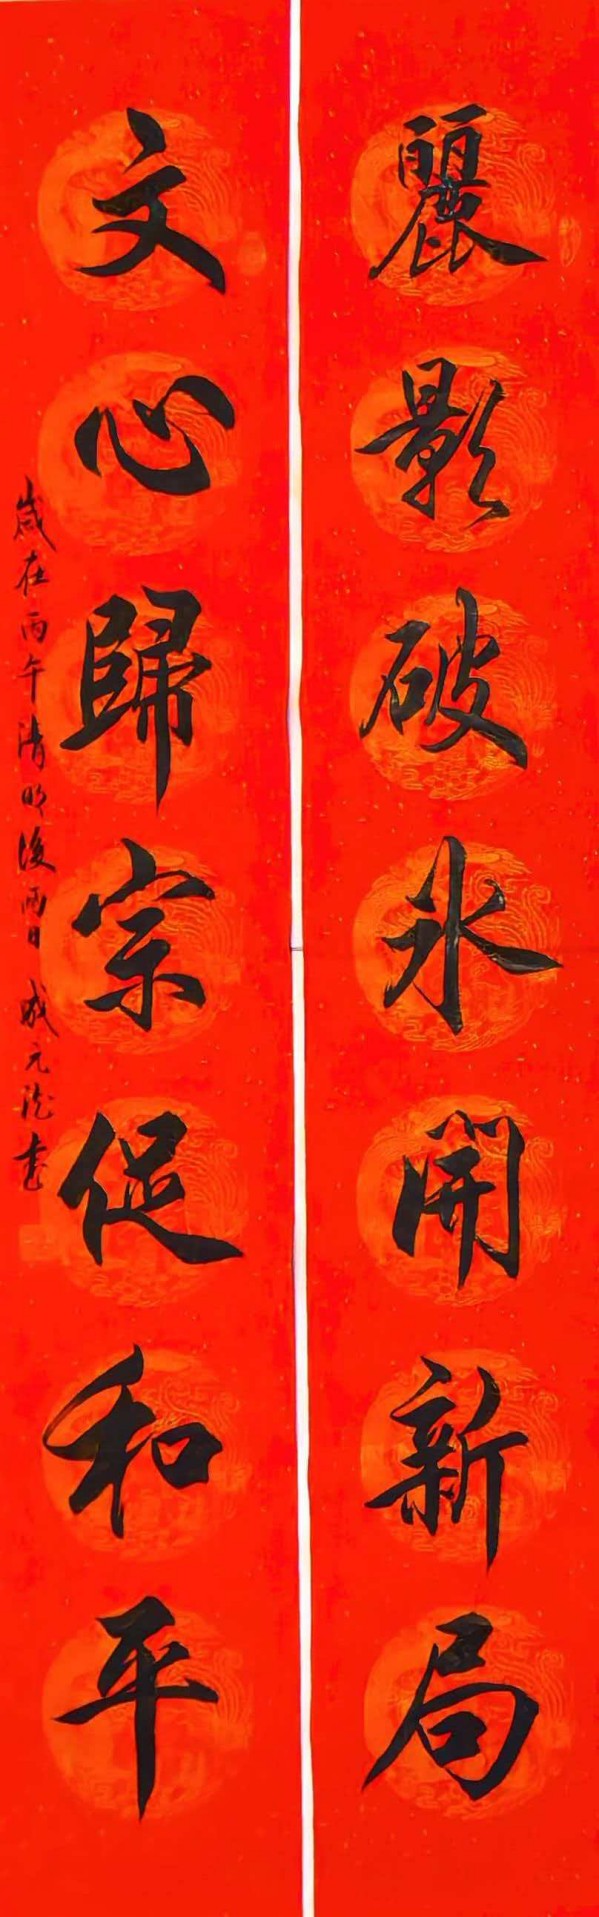 麗影破冰開新局
文心歸宗促和平
歲在丙午清明後兩日 成元法書